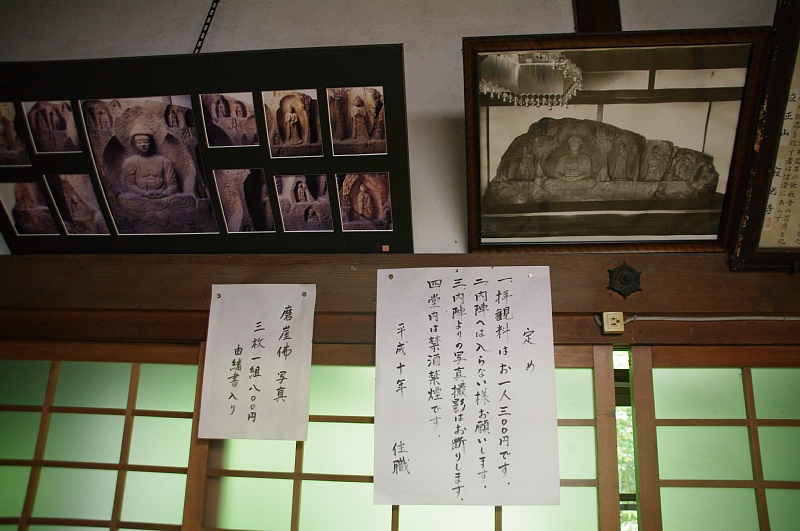 定め
一、拝観料はお一人三〇〇円です。
二、内陣へは入らない様お願いします。
三、内陣よりの写真撮影はお断りします。
四、堂内は禁酒禁煙です。
平成十年 住職
磨崖佛 写真
三枚一組八〇〇円
由緒書入り